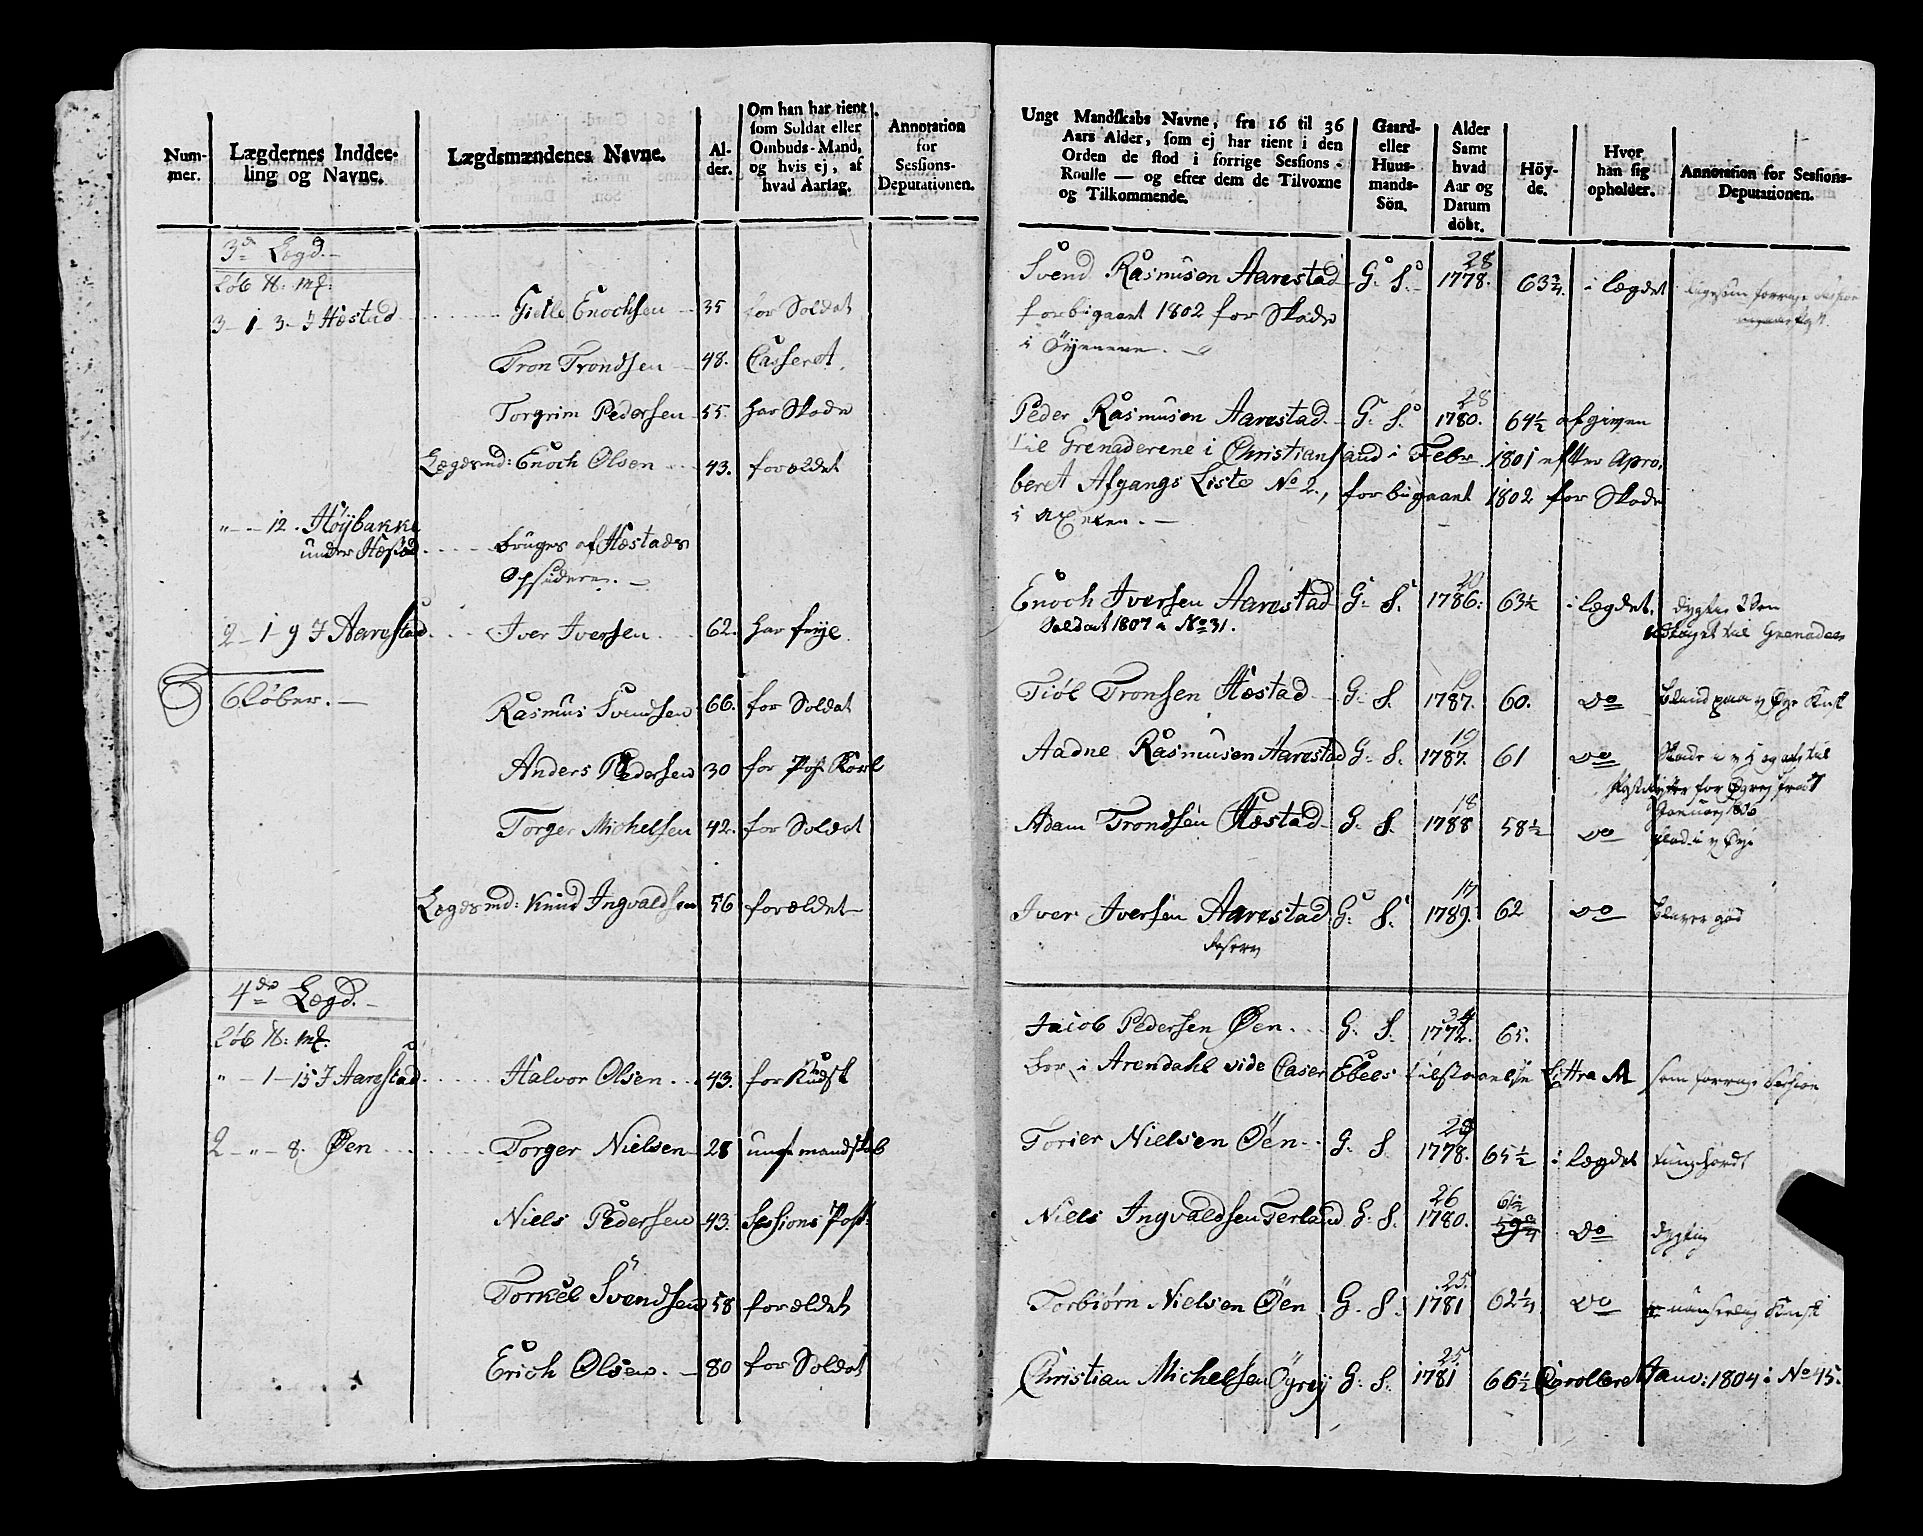 Num-
mer.
Lægdernes Inddee-
ling og Navne.
Lægdsmændenes Navne.
Al-
der.
Om han har tient
som Soldat eller
Ombuds-Mand,
og hvis ej, af
hvad Aarsag.
Annotation
for
Sessions-
Deputationen.
3d Lægd.
3 - 1 - 3 - J Hæstad
Gielle Enochsen 35 for Soldat
Tron Trondsen 48. Casseret.
Torgrim Pedersen 55. har Skade
Lægdsmd: Enoch Olsen 43. forældet
" - - 12. Höybakke
under Hæstad bruges af Hæstads
Opsidere.
2 - 1 - 9 J Aarestad Iver Iversen 62. har frije.
6 Løber.
Rasmus Svendsen 66. for Soldat
Anders Pedersen 30 for Post Karl
Torger Michelsen 42. for Soldat
Lægdsmd: Knud Ingvaldsen 56 forældet
4de Lægd.
" - 1 - 15 J Aarestad Halvor Olsen 43. for Kudsk
2 - " - 8. Øen Torger Nielsen 28 ungt mandskab
Niels Pedersen 43. Sessions Post.
Torkel Svendsen 58 forældet
Erich Olsen. 80 for Soldat
Ungt Mandskabs Navne, fra 16 til 36
Aars Alder, som ej har tient i den
Orden de stod i forrige Sessions-
Roulle — og efter dem de Tilvoxne
og Tilkommende.
Gaard-
eller
Huus-
mands-
Sön.
Alder
Samt
hvad
Aar og
Datum
döbt.
Höy-
de.
Hvor
han sig
opholder.
Annotation for Sessions-
Deputationen.
28
Svend Rasmusen Aarestad G: S: 1778. 63 3/4. i lægdet
forbigaaet 1802 for Skade
i Öyenene.
28
Peder Rasmusen Aarestad G: S: 1780. 64 1/2 afgiven
til Grenaderene i Christiansand i Febr. 1801 efter Apro-
beret Afgangs Liste No 2., forbigaaet 1802 for Skade
20
Enoch Iversen Aarestad G: S. 1786. 63 1/2 i lægdet.
Soldat 1807 a No 31. til Grenader
19
Tiöl Tronsen Hæstad G: S. 1787. 60. do
19
Aadne Rasmusen Aarestad G: S. 1787. 61 do
18
Adam Trondsen Hæstad G. S. 1788 58 1/2 do
17
Iver Iversen Aarestad G: S. 1789. 62 do
34
Jacob Pedersen Øen. G. S. 1772. 65.
bor i Arendahl vide Caser Ebels tilstaaelse Littra A som forrige Session
Torier Nielsen Öen G. S. 1778. 65 1/2 i lægdet tunghördt
26
Niels Ingvaldsen Terland G: S. 1780. 61 1/2 do dygtig
25.
Torbiørn Nielsen Öen G. S. 1781 62 1/4 do
25
Christian Michelsen Öyrej G: S. 1781 66 1/2 Enrolleret Janv: 1804 i No 45.